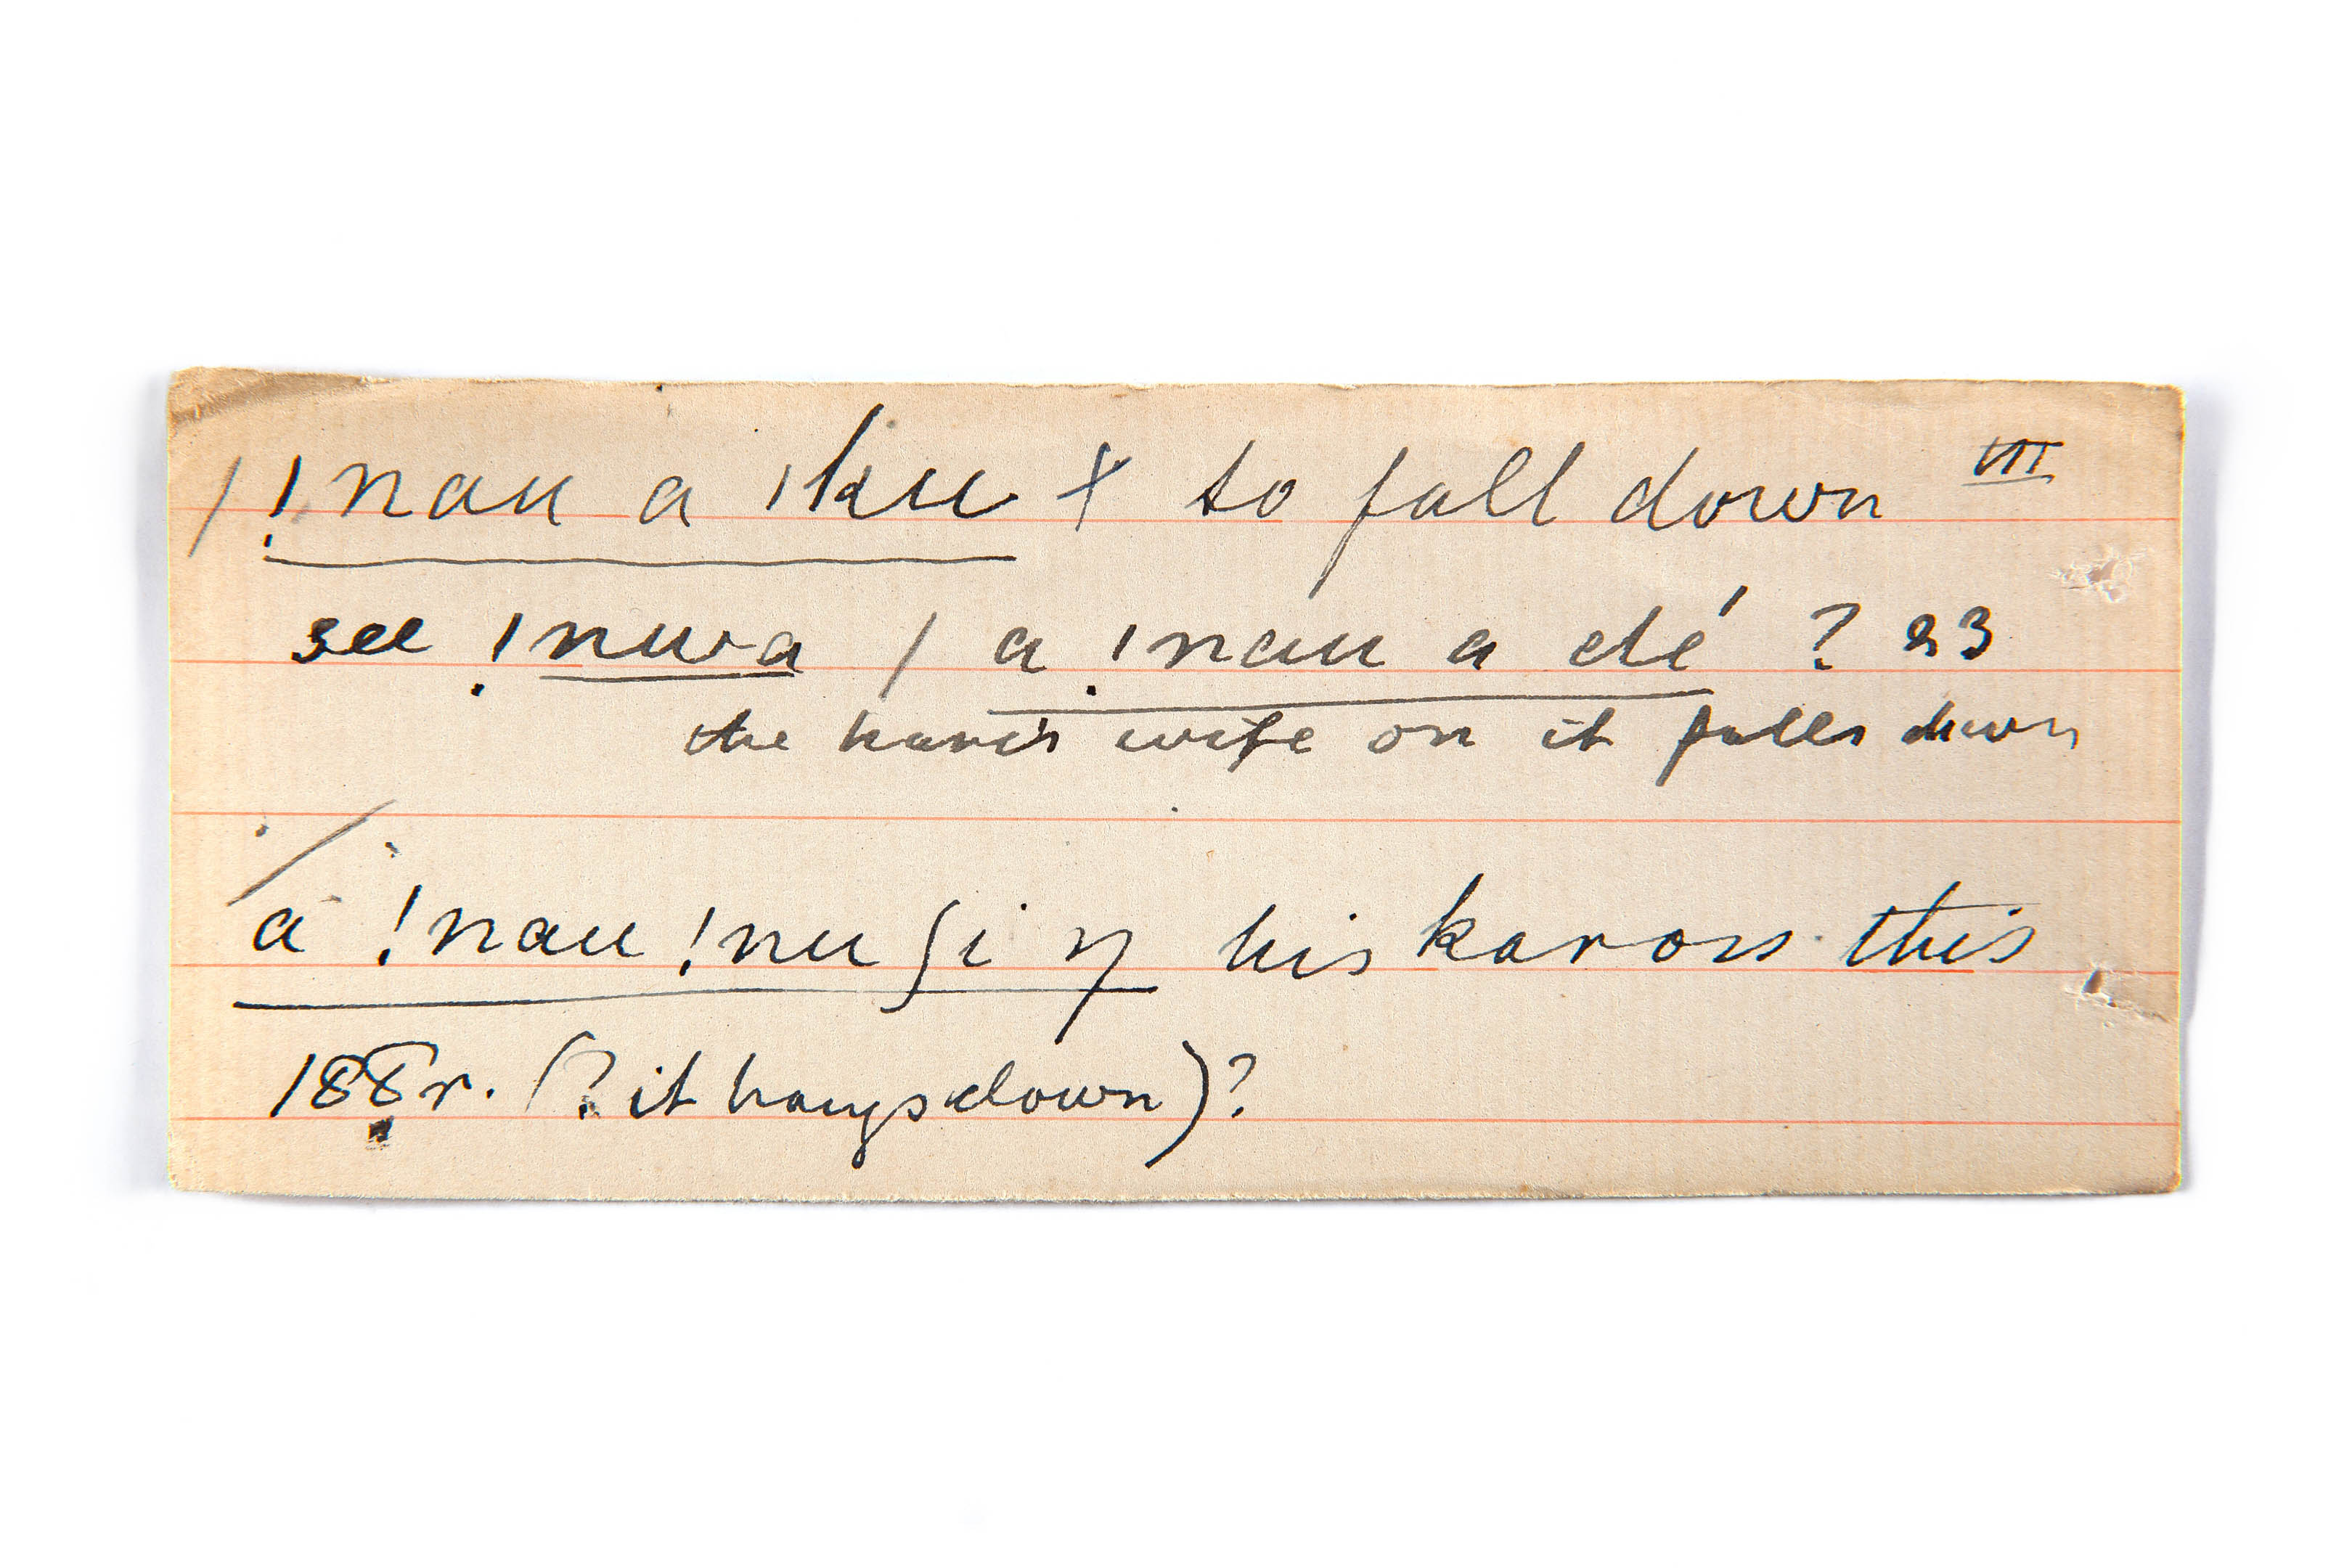 / !nau a ıku + to fall down VII
see !nwa / a !nau a dé ? 23
the hare's wife on it falls down
a !nau !nu ʃi ŋ his kaross this
188 r. (? it hangs down)?